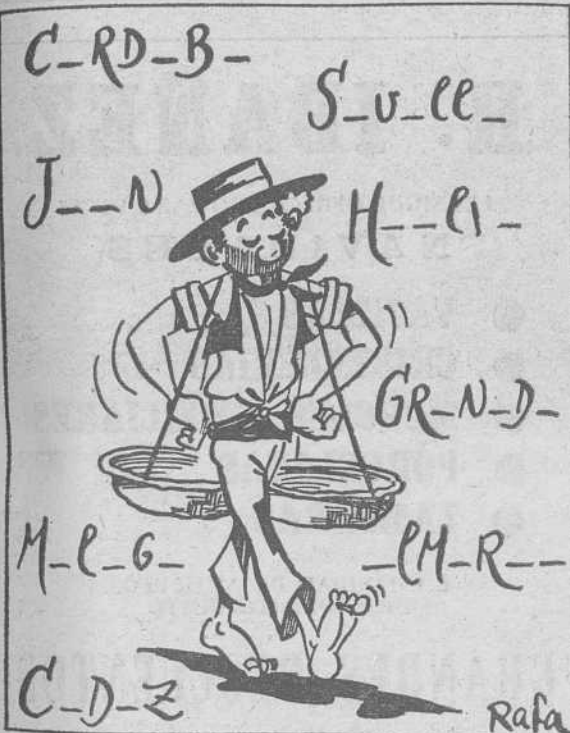 C_RD_B_
S_v_ll_
J__N
H__lv_
GR_N_D_
M_l_G_
_lM-R__
C_D_Z
Rafa